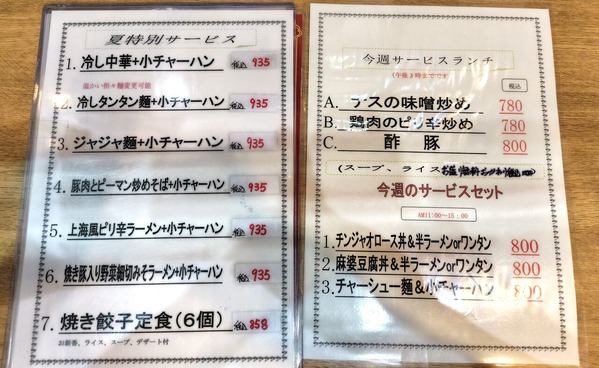 夏特別サービス
1. 冷し中華+小チャーハン 税込 935
温かい担々麺変更可能
2. 冷しタンタン麺+小チャーハン 税込 935
3. ジャジャ麺+小チャーハン 税込 935
4. 豚肉とピーマン炒めそば+小チャーハン 税込 935
5. 上海風ピリ辛ラーメン+小チャーハン 税込 935
6. 焼き豚入り野菜細切みそラーメン+小チャーハン 税込 935
7. 焼き餃子定食(6個) 税込 858
お新香、ライス、スープ、デザート付
今週サービスランチ
(午後3時までです)
税込
A. ナスの味噌炒め 780
B. 鶏肉のピリ辛炒め 780
C. 酢豚 800
(スープ、ライス
今週のサービスセット
AM11:00~15:00
1.チンジャオロース丼&半ラーメンorワンタン 800
2.麻婆豆腐丼&半ラーメンorワンタン 800
3.チャーシュー麺&小チャーハン 800